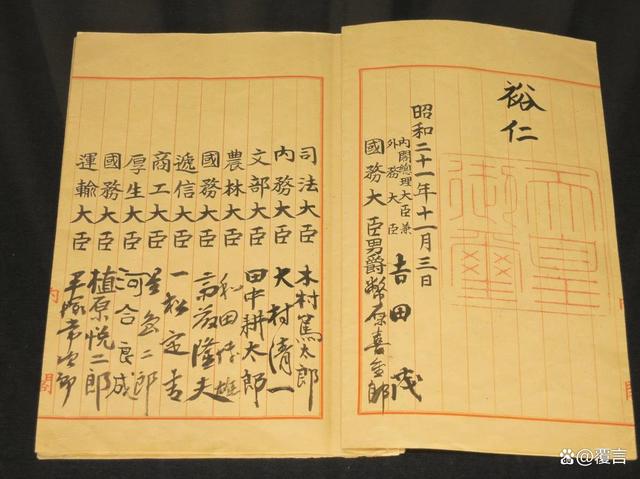 裕仁
天皇御璽
昭和二十一年十一月三日
内閣總理大臣兼
外務大臣
吉田茂
國務大臣男爵幣原喜重郎
司法大臣 木村篤太郎
内務大臣 大村清一
文部大臣 田中耕太郎
農林大臣 和田博雄
國務大臣 斎藤隆夫
遞信大臣 一松定吉
商工大臣 星島二郎
厚生大臣 河合良成
國務大臣 植原悦二郎
運輸大臣 平塚常次郎
内閣
@覆言